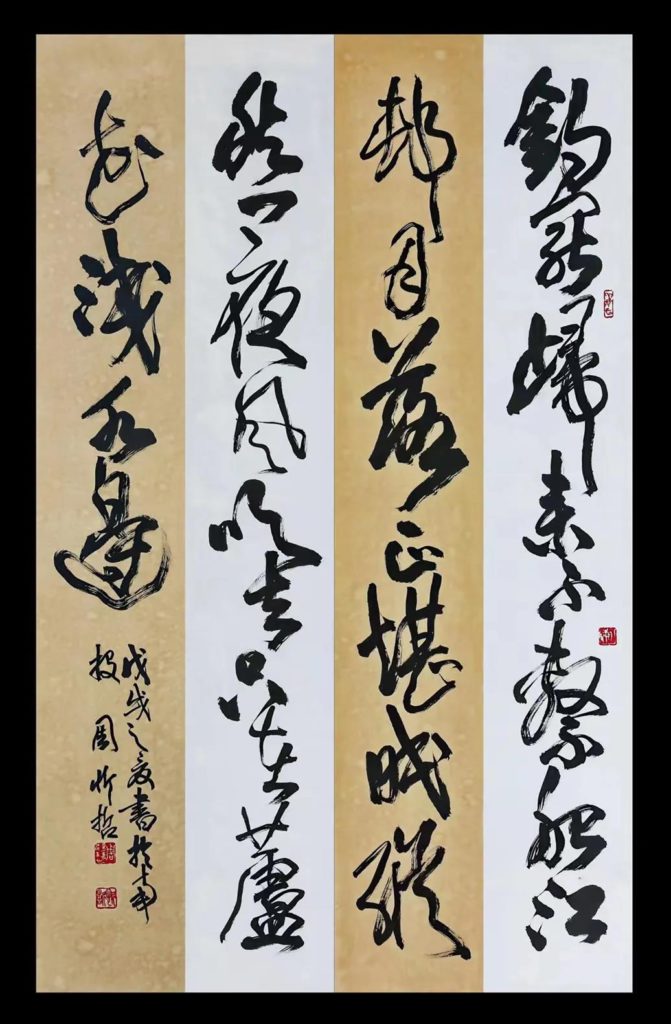 釣罷歸来不繫船江
邨月落正堪眠縱
然一夜風吹去只在蘆
花淺水邊
戊戌之夏書於
周忻哲